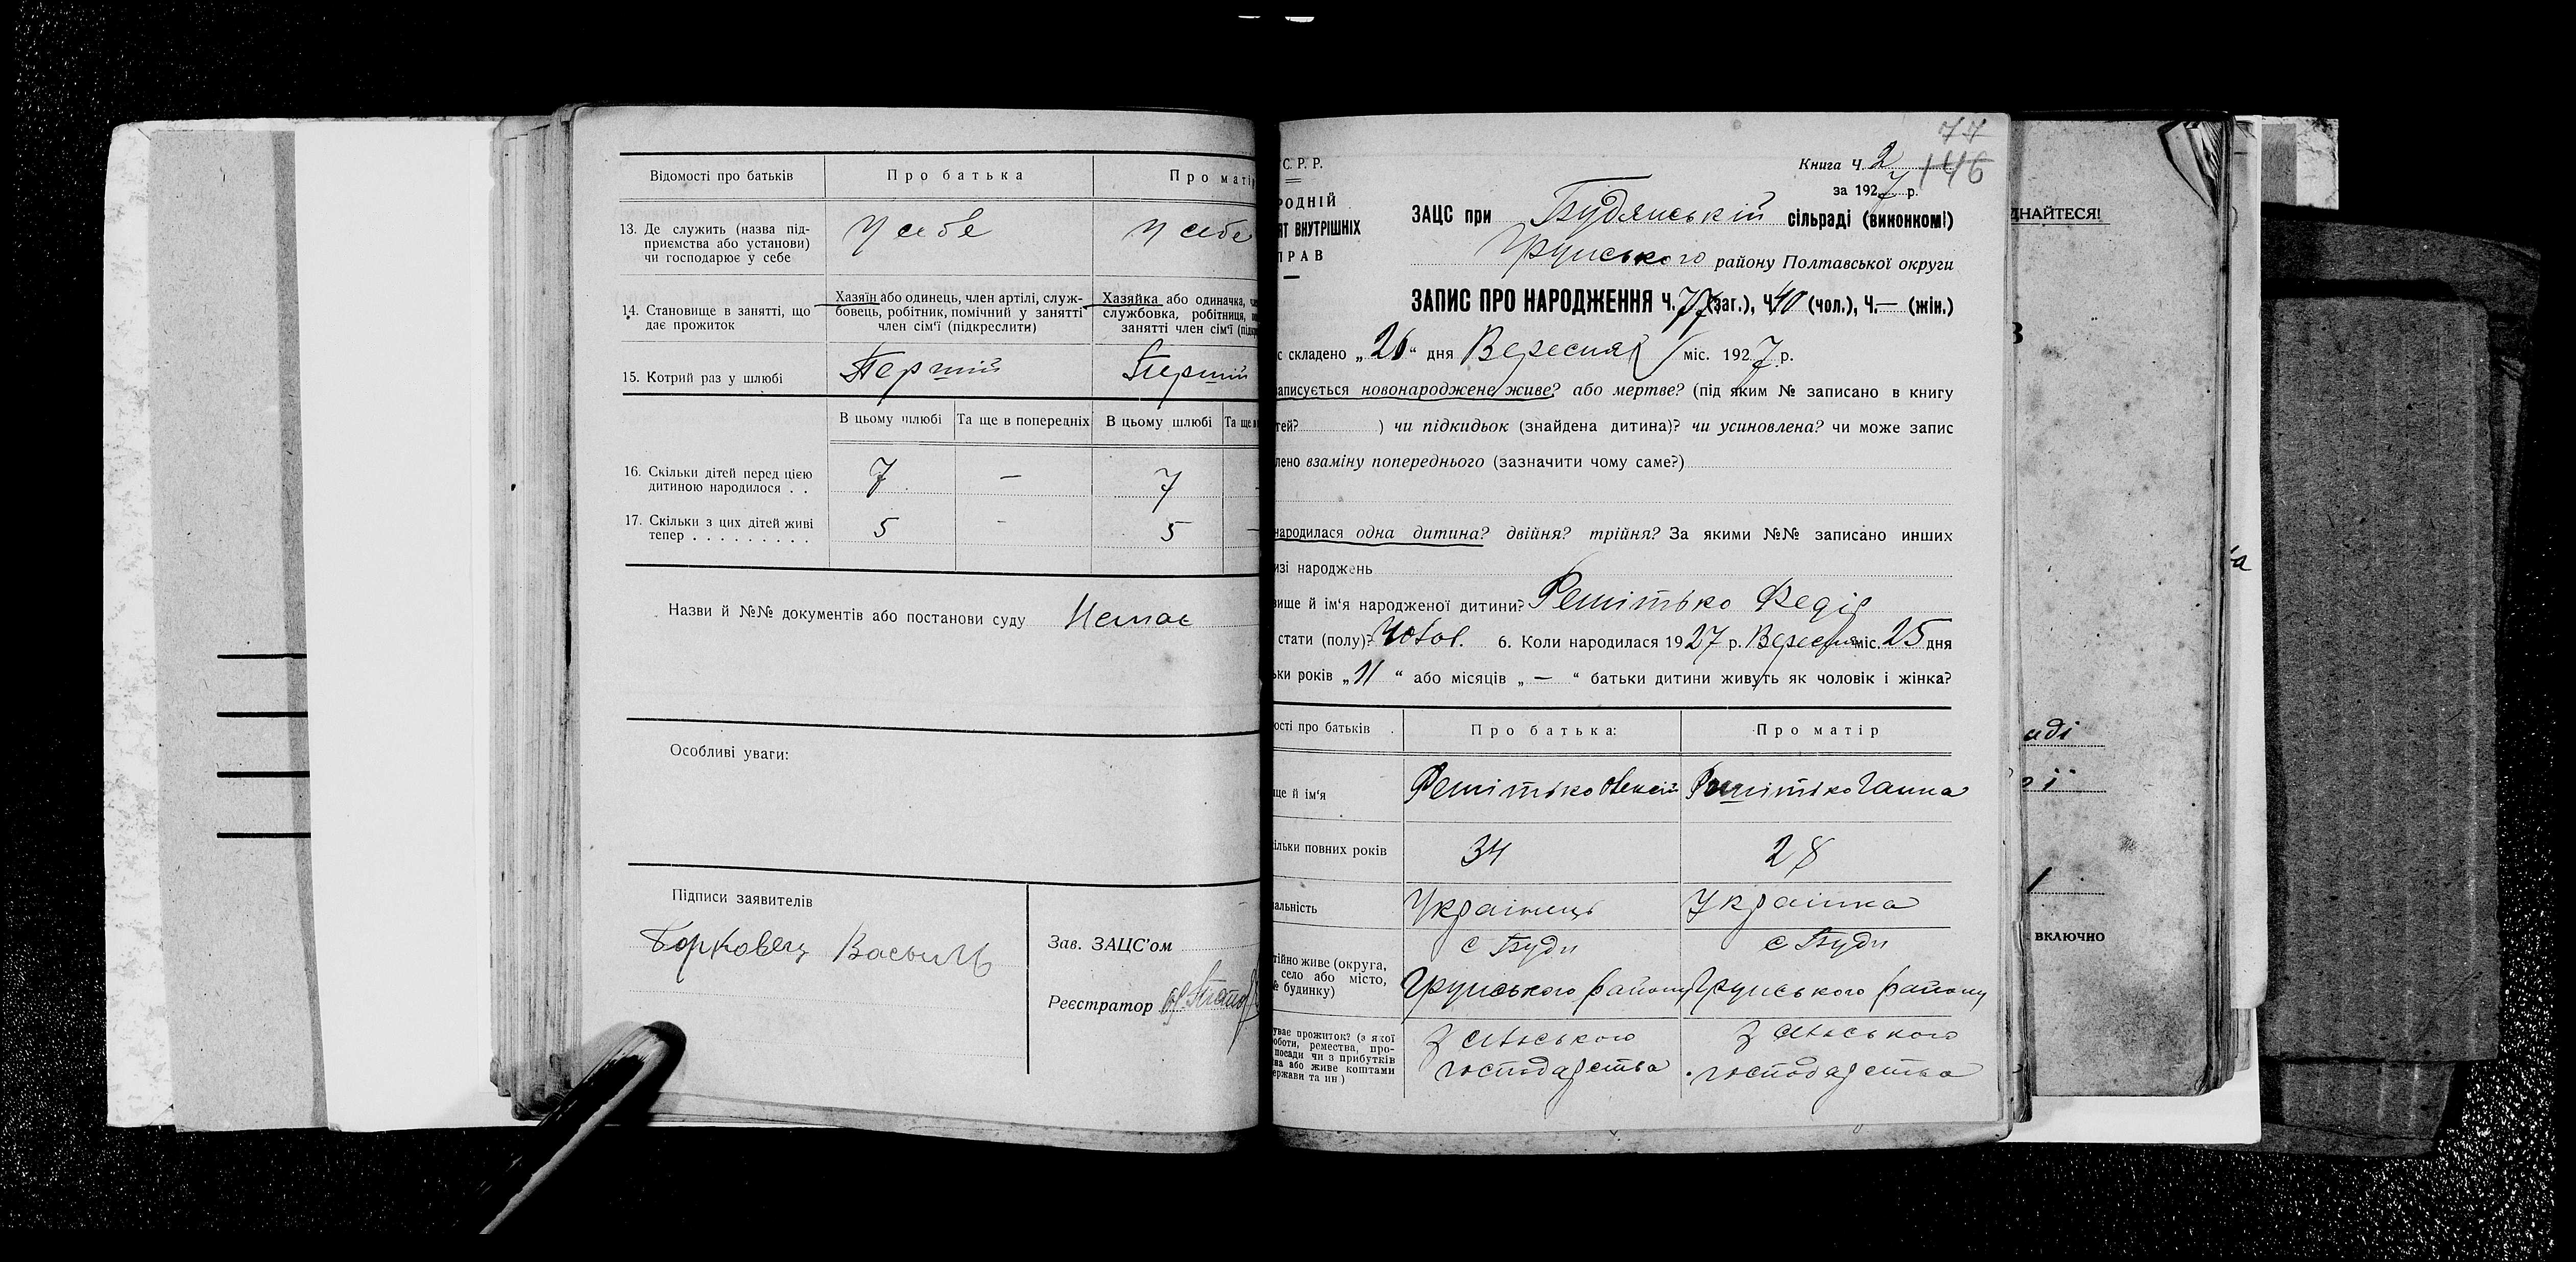 Відомості про батьків
Про батька
Про матір
13. Де служить (назва під-
приємства або установи)
чи господарює у себе
У себе
У себе
14. Становище в занятті, що
дає прожиток
Хазяїн або одинець, член артілі, служ-
бовець, робітник, помічний у занятті
член сім'ї (підкреслити)
Хазяйка або одиначка,
службовка, робітниця,
занятті член сім'ї
15. Котрий раз у шлюбі
Першій
Першій
В цьому шлюбі
Та ще в попередніх
В цьому шлюбі
Та ще в
16. Скільки дітей перед цією
дитиною народилося . .
7
—
7
17. Скільки з цих дітей живі
тепер . . . . . . . . .
5
-
5
—
Назви й №№ документів або постанови суду Немає
Особливі уваги:
Підписи заявителів
Борковец Василь
Зав. ЗАЦС'ом
Реєстратор
77
146
С. Р. Р.
Книга Ч. 2
за 1927 р.
РОДНІЙ
АТ ВНУТРІШНІХ
ПРАВ
ЗАЦС при Будянській сільраді (виконкомі)
Грунського району Полтавської округи
ЗАПИС ПРО НАРОДЖЕННЯ Ч. 77 (заг.), Ч. 40 (чол.), Ч. — (жін.)
с складено „26“ дня Вересня міс. 1927 р.
аписується новонароджене живе? або мертве? (під яким № записано в книгу
тей? ) чи підкидьок (знайдена дитина)? чи усиновлена? чи може запис
лено взаміну попереднього (зазначити чому саме?)
народилася одна дитина? двійня? трійня? За якими №№ записано инших
изі народжень
вище й ім'я народженої дитини? Решітько Федір
стати (полу)? Чолов. 6. Коли народилася 1927 р. Вересня міс. 25 дня
ьки років „11“ або місяців „—“ батьки дитини живуть як чоловік і жінка?
ості про батьків
Про батька:
Про матір
ще й ім'я
Решітько Олексій
Решітько Ганна
ільки повних років
34
28
альність
Українець
Українка
тійно живе (округа,
село або місто,
№ будинку)
с Буди
Грунського району
с Буди
Грунського району
уває прожиток? (з якої
оботи, ремества, про-
посади чи з прибутків
ва або живе коштами
ержави та ин)
З сільського
господарства
З сільського
господарства
ДНАЙТЕСЯ!
В
аді
ї
1
ВКЛЮЧНО